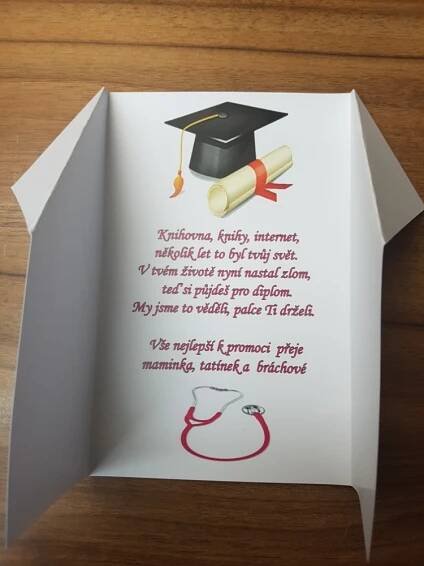 Knihovna, knihy, internet,
několik let to byl tvůj svět.
V tvém životě nyní nastal zlom,
teď si půjdeš pro diplom.
My jsme to věděli, palce Ti drželi.
Vše nejlepší k promoci přeje
maminka, tatínek a bráchové